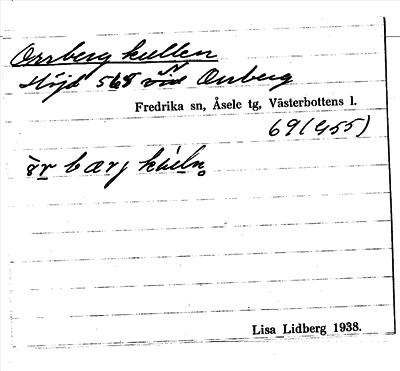 Orrberg kullen
Höjd 568 vid Orrberg
Fredrika sn, Åsele tg, Västerbottens l.
69 (455)
Lisa Lidberg 1938.